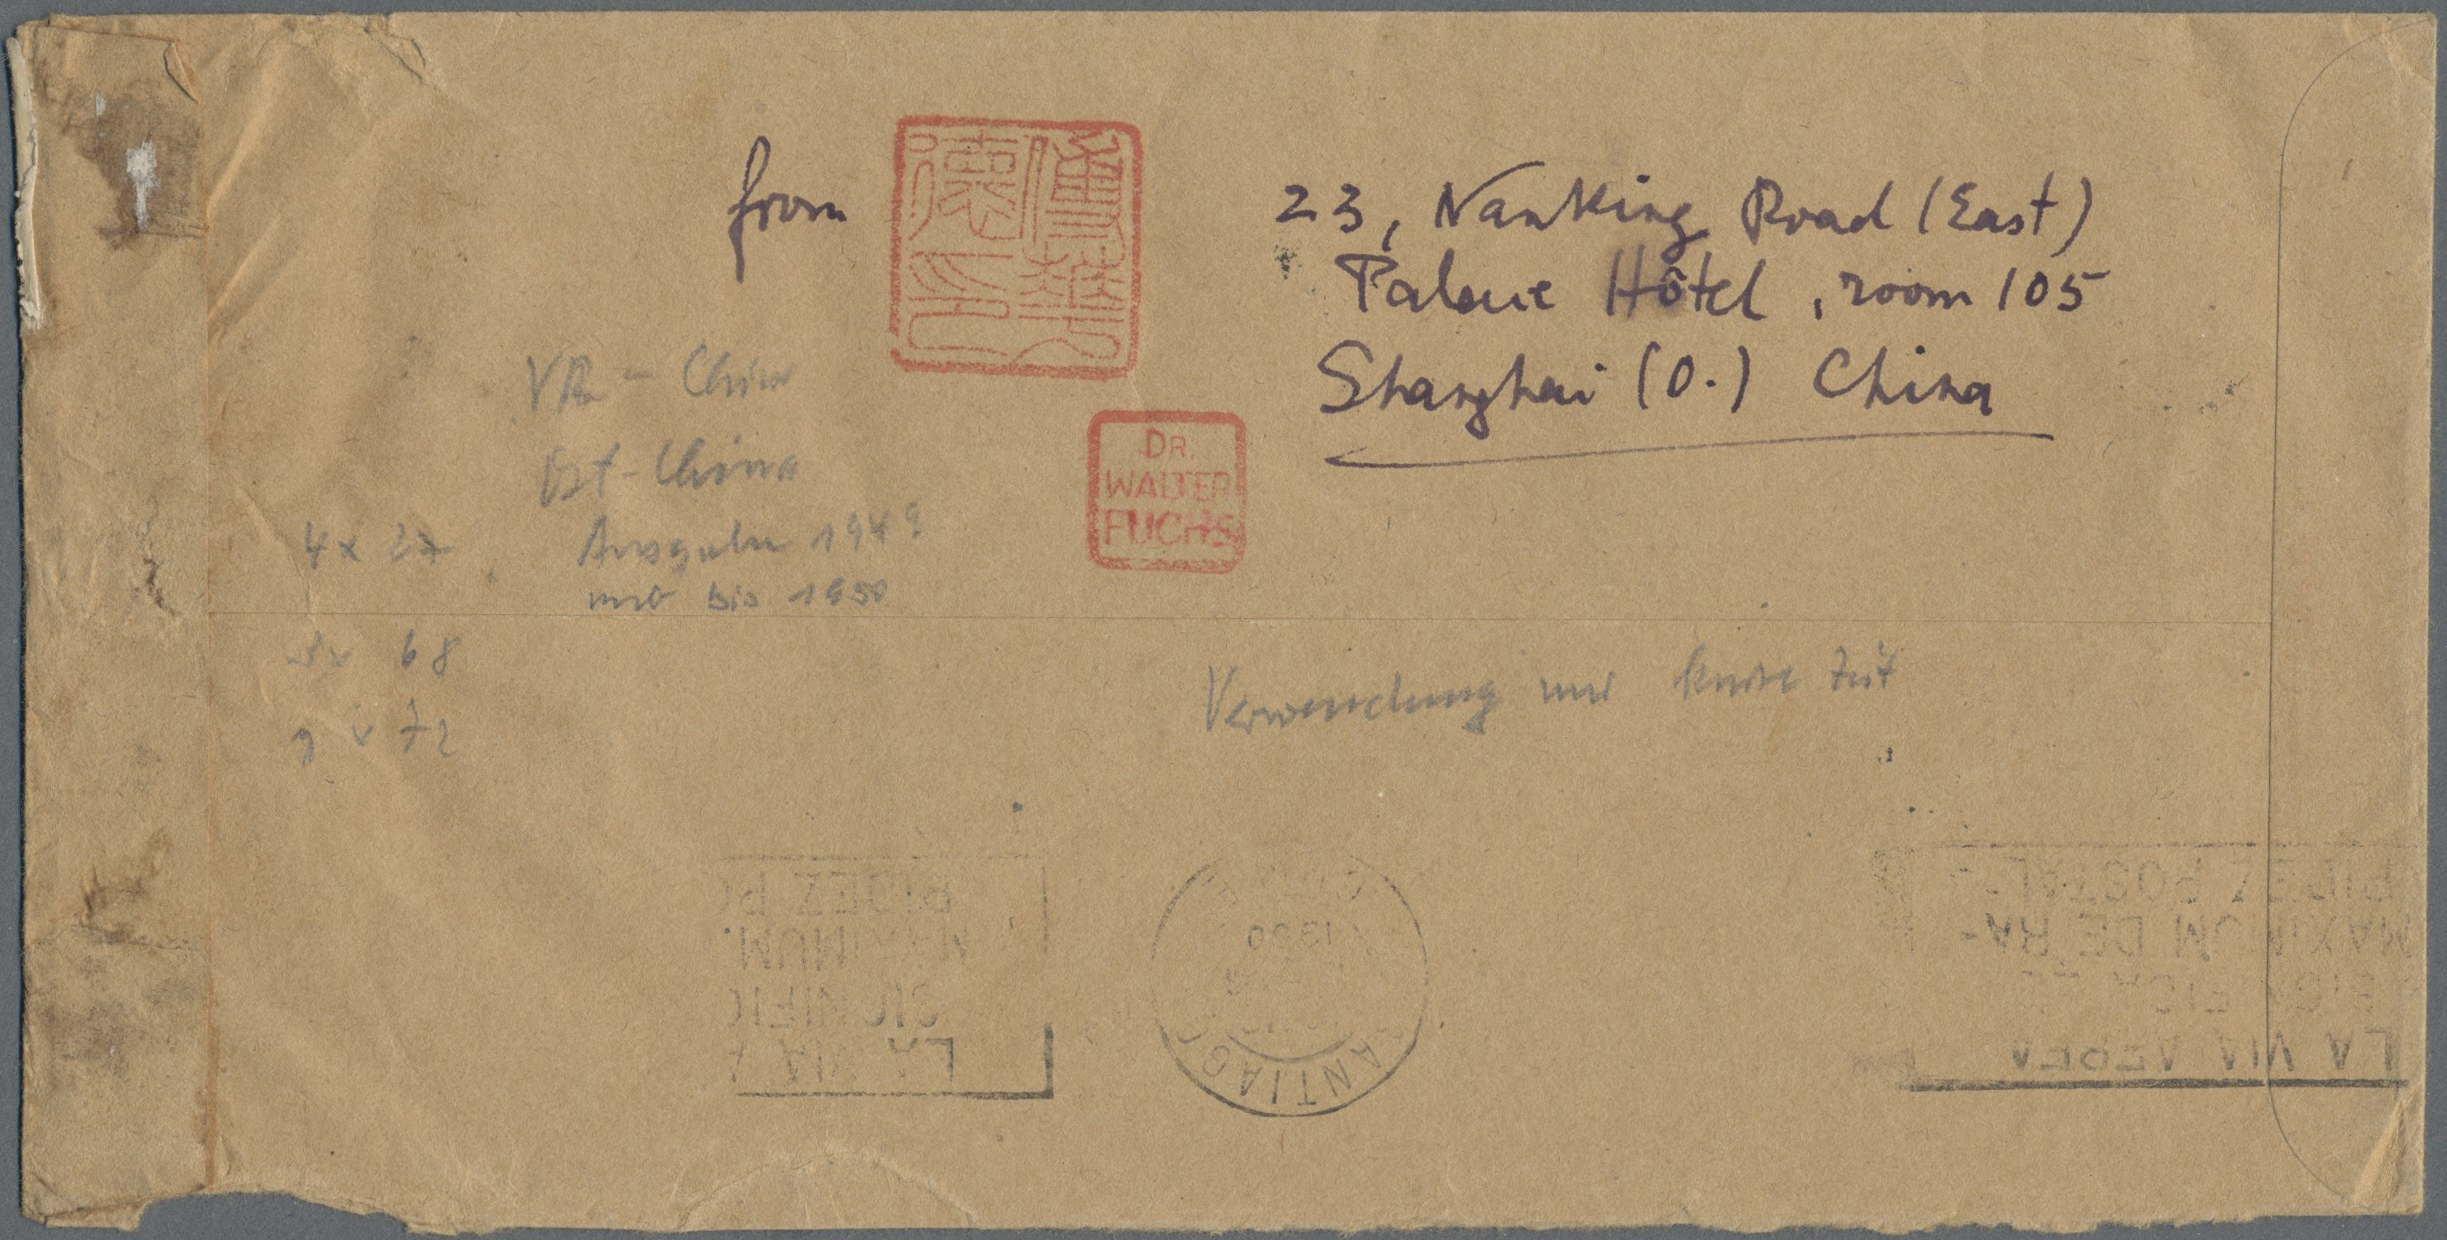 from
傅華
德印
23, Nanking Road (East)
Palace Hôtel, room 105
Shanghai (O.) China
DR.
WALTER
FUCHS
VR - China
Ost-China
Ausgabe 1949
nur bis 1950
4 x
68
72
Verwendung nur kurze Zeit
PIDEZ PO
MAXIMUM
SIGNIFIC
LA VIA A
1950
ANTIAGO
PIDEZ POSTAL-
MAXIMUM DE RA-
LA VIA AEREA